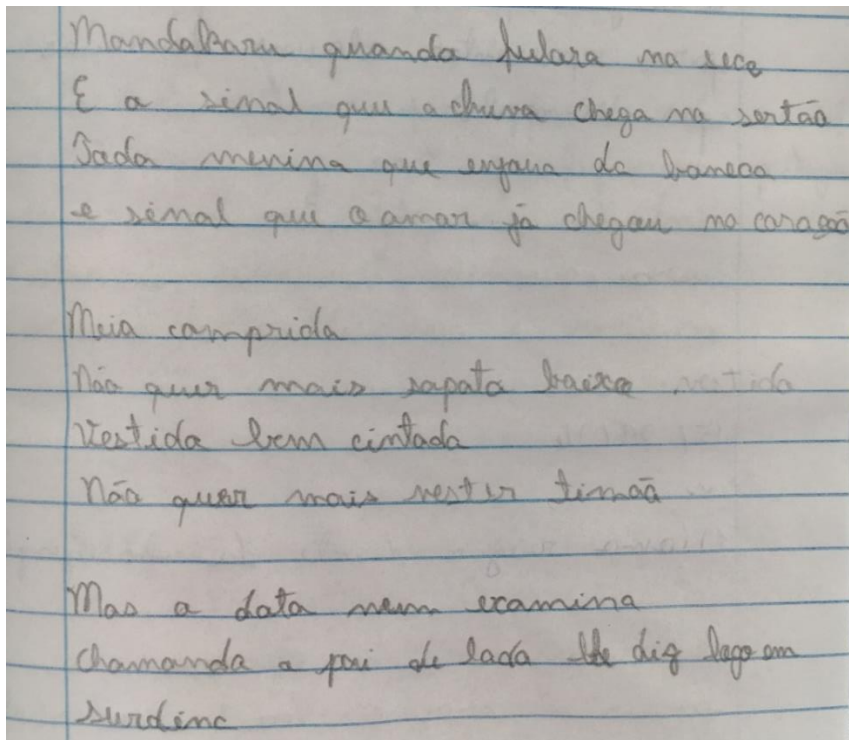 Mandakaru quanda fulara na seca
E a sinal que a chuva chega no sertão
Toda menina que enjoua da baneca
e sinal que o amar já chegau no caração
Meia camprida
Não quer mais sapata baixo vestida
Vestida bem cintada
Não quer mais vestir timão
Mas a data nem examina
chamanda a pai de lada lhe diz lago em
surdina